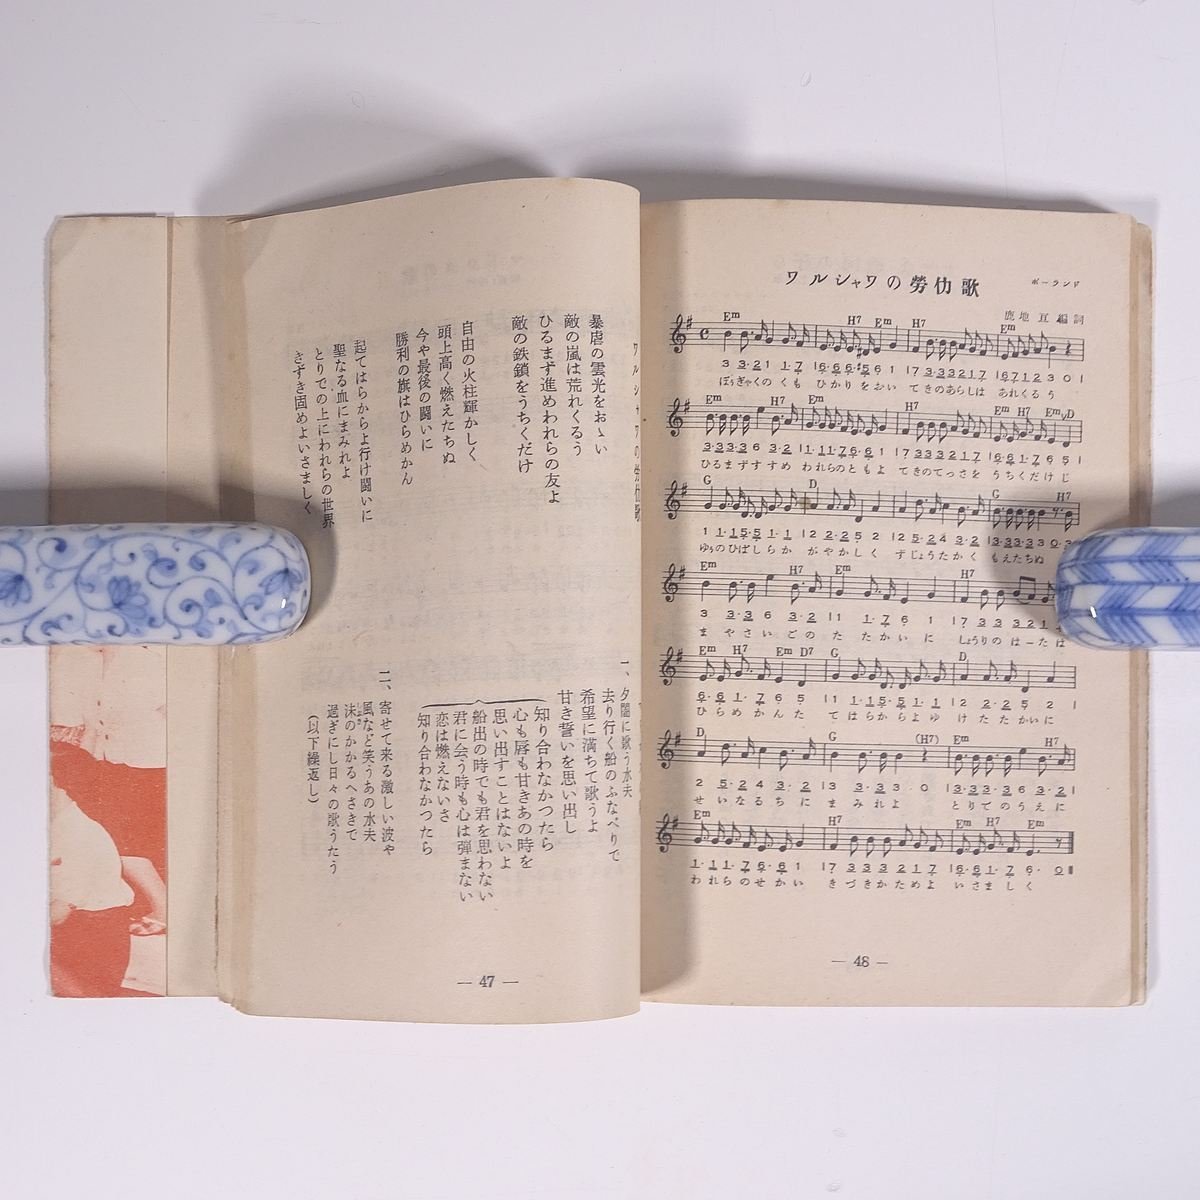 ワルシャワの勞仂歌
暴虐の雲光をおゝい
敵の嵐は荒れくるう
ひるまず進めわれらの友よ
敵の鉄鎖をうちくだけ
自由の火柱輝かしく
頭上高く燃えたちぬ
今や最後の闘いに
勝利の旗はひらめかん
起てはらからよ行け闘いに
聖なる血にまみれよ
とりでの上にわれらの世界
きずき固めよいさましく
一、夕闇に歌う水夫
去り行く船のふなべりで
希望に満ちて歌うよ
甘き誓いを思い出し
知り合わなかつたら
心も唇も甘きあの時を
思い出すことはないよ
船出の時でも君を思わない
君に会う時も心は弾まない
恋は燃えないさ
知り合わなかつたら
二、寄せて来る激しい波や
風など笑うあの水夫
沫のかかるへさきで
過ぎにし日々の歌うたう
(以下繰返し)
— 47 —
ワルシャワの勞仂歌
ポーランド
鹿地亘編詞
Em H7 Em H7 Em
3 3·2 1 1·7 1 6·6 6·5 6 1 1 7 3·3 3 2 1 7 1 6 7 1 2 3 0 1
ぼうぎゃくの くも ひかり をおい てきのあらしは あれくるう
Em H7 Em H7 Em H7 Em D
3·3 3·3 6 3·2 1 1·1 7·6 6·1 1 7 3 3 2 1 7 1 6·6 1·7 6 5 1
ひるまずすすめ われらのともよ てきのてっさを うちくだけ じ
G D G H7
1 1·1 5·5 1·1 1 2 2·2 5 2 1 2 5·2 4 3·2 1 3·3 3·3 3 0·3
ゆうのひばしらか がやかしく ずじょうたかく もえたちぬ
Em H7 Em H7
3 3·3 6 3·2 1 1 1·7 6 1 1 7 3 3 3 2 1
まやさいごの たたかいに しょうりのはーたは
Em H7 Em D7 G D
6·6 1·7 6 5
ひらめかんた てはらからよゆ けたたかいに
D G (H7) Em H7
2 5·2 4 3·2 1 3 3·3 3 0
せいなるちに まみれよ とりでのうえに
Em H7 Em H7 Em
1·1 1·7 6·6 1 1 7 3 3 2 1 7 1 6·6 1·7 6· 0
われらのせかい きづきかためよ いさましく
— 48 —